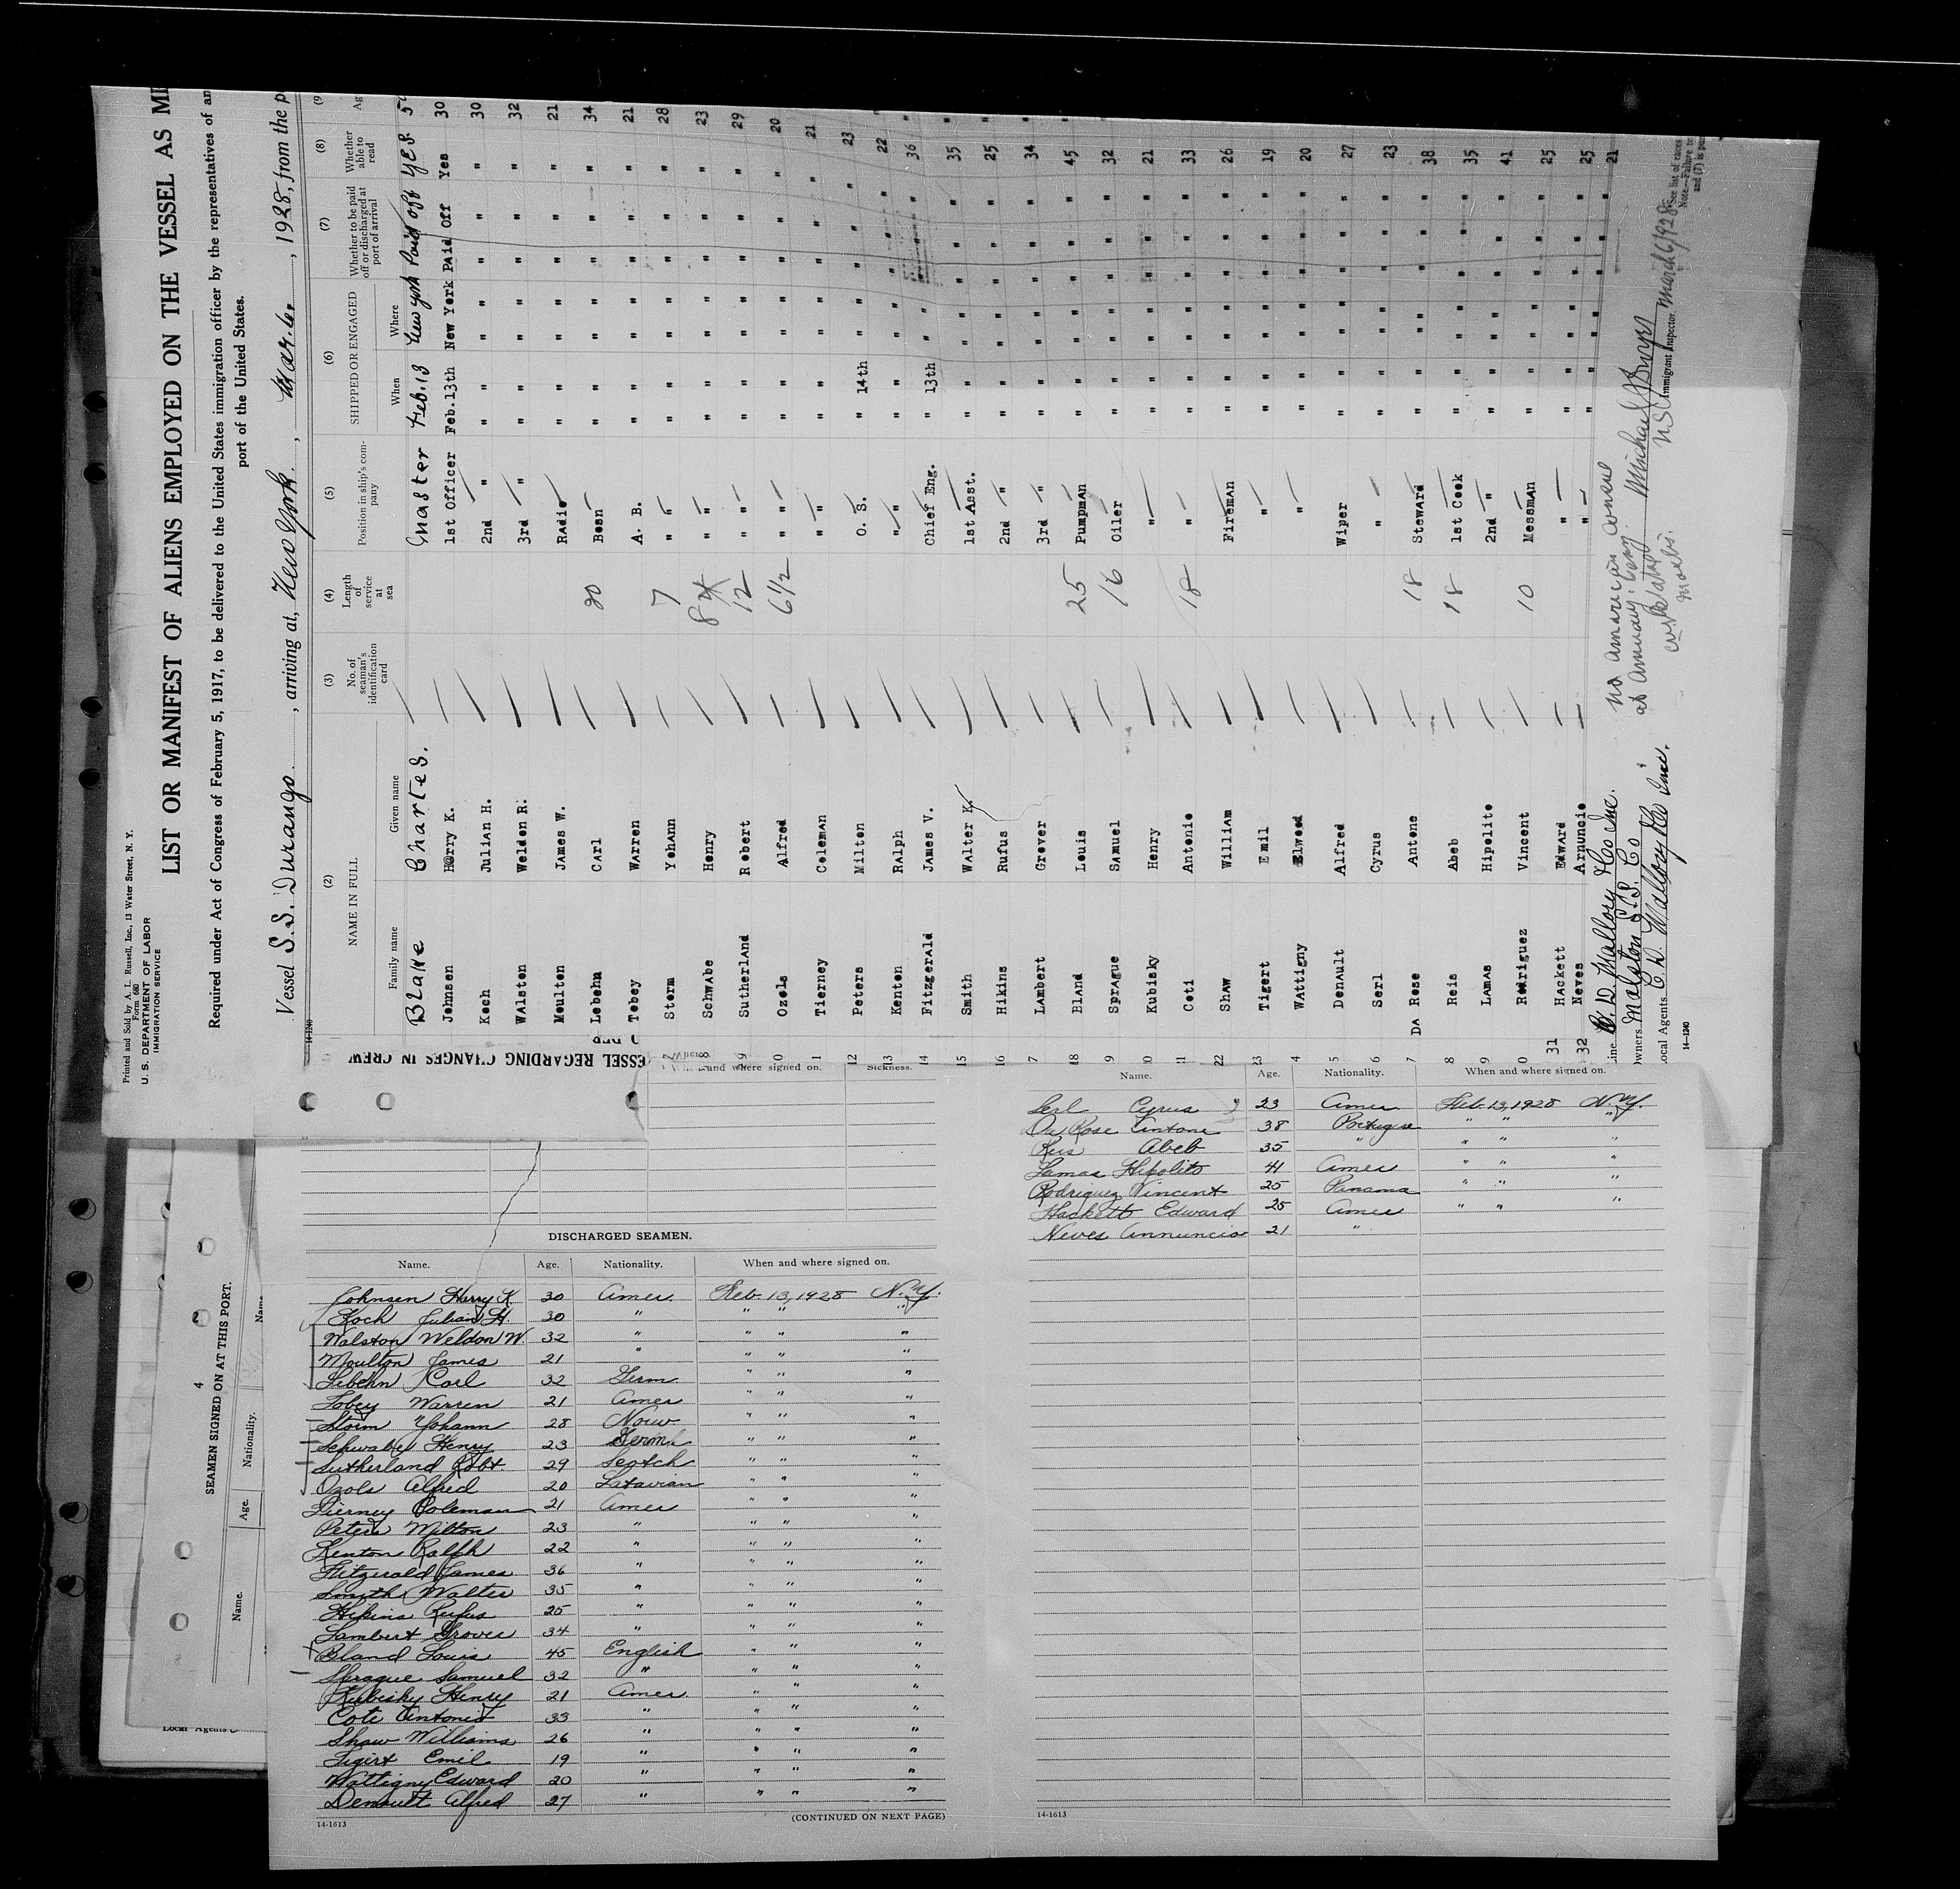 Printed and Sold by A. L. Russell, Inc., 13 Water Street, N. Y.
Form 680
U. S. DEPARTMENT OF LABOR
IMMIGRATION SERVICE
LIST OR MANIFEST OF ALIENS EMPLOYED ON THE VESSEL AS ME
Required under Act of Congress of February 5, 1917, to be delivered to the United States immigration officer by the representatives of an
port of the United States.
Vessel S.S. Durango, arriving at, New York., Mar. 6., 1928, from the p
14-1240
(2) (3) (4) (5) (6) (7) (8) (9
NAME IN FULL No. of seaman's identification card Length of service at sea Position in ship's company SHIPPED OR ENGAGED Whether to be paid off or discharged at port of arrival Whether able to read Ag
Family name Given name When Where
Blake Charles. Master Feb. 13 New York Paid off Yes.
Johnsen Harry K. 1st Officer Feb. 13th New York Paid Off Yes 30
Koch Julian H. 2nd " " " " " " " " 30
Walston Weldon R. 3rd " " " " " " " " 32
Moulton James W. Radio " " " " " " " 21
Lebehn Carl 20 Bosn " " " " " " " 34
Tobey Warren A. B. " " " " " " " 21
Storm Yohann 7 " " " " " " " " " 28
Schwabe Henry 8 " " " " " " " " " 23
Sutherland Robert 12 " " " " " " " " " 29
Ozols Alfred 6 1/2 " " " " " " " " " 20
11 Tierney Coleman " " " " " " " " " 21
12 Peters Milton O. S. " 14th " " " " " 23
13 Kenton Ralph " " " " " " " " " 22
14 Fitzgerald James V. Chief Eng. " 13th " " " " " 36
15 Smith Walter K. 1st Asst. " " " " " " " 35
16 Hikins Rufus 2nd " " " " " " " " 25
7 Lambert Grover 3rd " " " " " " " " 34
18 Bland Louis 25 Pumpman " " " " " " " 45
9 Sprague Samuel 16 Oiler " " " " " " " 32
0 Kubisky Henry " " " " " " " " 21
Coti Antonio 18 " " " " " " " " 33
22 Shaw William Fireman " " " " " " " 26
23 Tigert Emil " " " " " " " " 19
4 Wattigny Elwood " " " " " " " " 20
5 Denault Alfred Wiper " " " " " " " 27
6 Serl Cyrus " " " " " " " " 23
7 Da Rose Antone 18 Steward " " " " " " " 38
8 Reis Abeb 18 1st Cook " " " " " " " 35
9 Lamas Hipolito 2nd " " " " " " " " 41
0 Rodriguez Vincent 10 Messman " " " " " " " 25
31 Hackett Edward " " " " " " " " 25
32 Neves Arnuncio " " " " " " " " 21
Line C. D. Mallory & Co Inc.
Owners Malston S.S. Co
Local Agents C. D. Mallory & Co Inc.
no American Consul
at
Immigrant Inspector.
March 6/1928
See list of races
Note.—Failure to
and (7) is pe
14-1240
ESSEL REGARDING CHANGES IN CREW
and where signed on. Sickness.
DISCHARGED SEAMEN.
Name. Age. Nationality. When and where signed on.
Johnsen Harry K. 30 Amer. Feb. 13, 1928 N.Y.
Koch Julian H. 30 " " " "
Walston Weldon W. 32 " " " "
Moulton James 21 " " " "
Lebehn Carl 32 Germ " " "
Tobey Warren 21 Amer " " "
Storm Yohann 28 Norw " " "
Schwabe Henry 23 Germ. " " "
Sutherland Robt. 29 Scotch " " "
Ozols Alfred 20 Latavian " " "
Tierney Coleman 21 Amer " " "
Peters Milton 23 " " " "
Kenton Ralph 22 " " " "
Fitzgerald James 36 " " " "
Smith Walter 35 " " " "
Hikins Rufus 25 " " " "
Lambert Grover 34 " " " "
Bland Louis 45 English " " "
Sprague Samuel 32 " " " "
Kubisky Henry 21 Amer. " " "
Coti Antonio 33 " " " "
Shaw Williams 26 " " " "
Tigirt Emil 19 " " " "
Wattigny Edward 20 " " " "
Denault Alfred 27 " " " "
14-1613
(CONTINUED ON NEXT PAGE)
Name. Age. Nationality. When and where signed on.
Serl Cyrus 23 Amer Feb. 13, 1928 N.Y.
Da Rose Antone 38 Portugue " " "
Reis Abeb 35 " " " "
Lamas Hipolito 41 Amer " " "
Rodriguez Vincent 25 Panama " " "
Hackett Edward 25 Amer " " "
Neves Annuncio 21 "
14-1613
4
SEAMEN SIGNED ON AT THIS PORT.
Name. Age. Nationality. Name
Local Agents